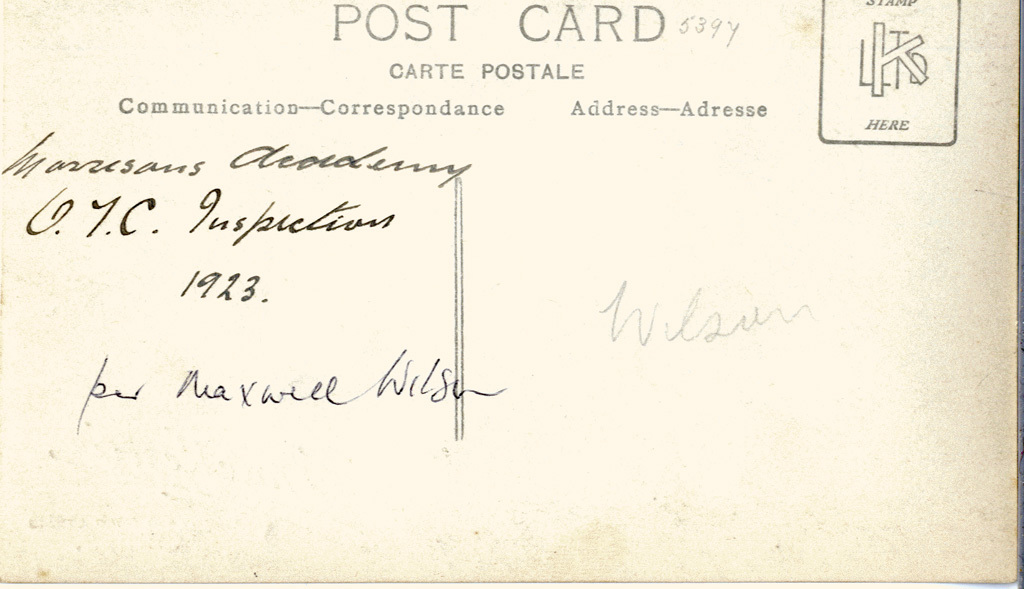 POST CARD 5394
CARTE POSTALE
Communication—Correspondance Address—Adresse
STAMP
HERE
Morrisons Academy
O.T.C. Inspection
1923.
Wilson
per Maxwell Wilson